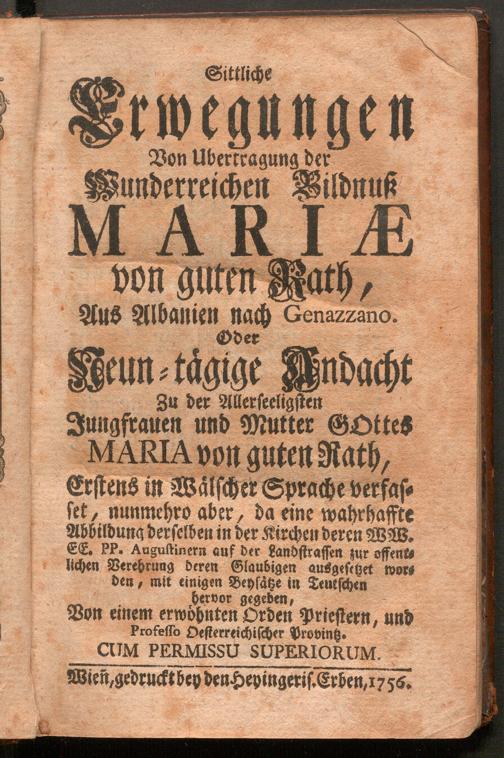 Sittliche
Erwegungen
Von Ubertragung der
Wunderreichen Bildnuß
MARIÆ
von guten Rath,
Aus Albanien nach Genazzano.
Oder
Neun-tägige Andacht
Zu der Allerseeligsten
Jungfrauen und Mutter GOttes
MARIA von guten Rath,
Erstens in Wälscher Sprache verfas-
set, nunmehro aber, da eine wahrhaffte
Abbildung derselben in der Kirchen deren WW.
EE. PP. Augustinern auf der Landstrassen zur offent-
lichen Verehrung deren Glaubigen ausgesetzet wor-
den, mit einigen Beysätze in Teutschen
hervor gegeben,
Von einem erwöhnten Orden Priestern, und
Professo Oesterreichischer Provintz.
CUM PERMISSU SUPERIORUM.
Wien̄, gedruckt bey den Heyingeris. Erben, 1756.